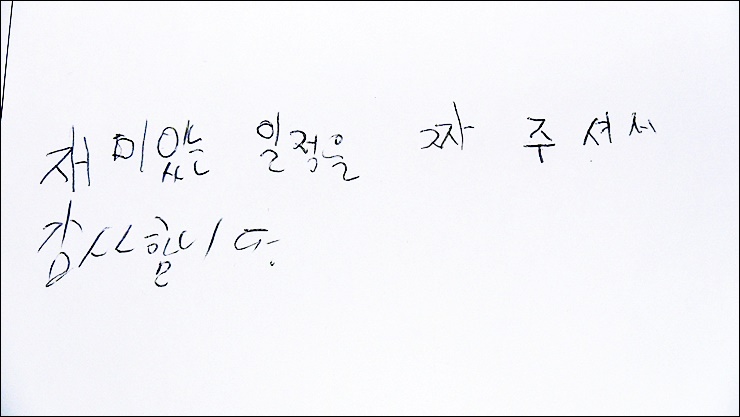 재미있는 일정을 짜 주셔서
감사합니다.